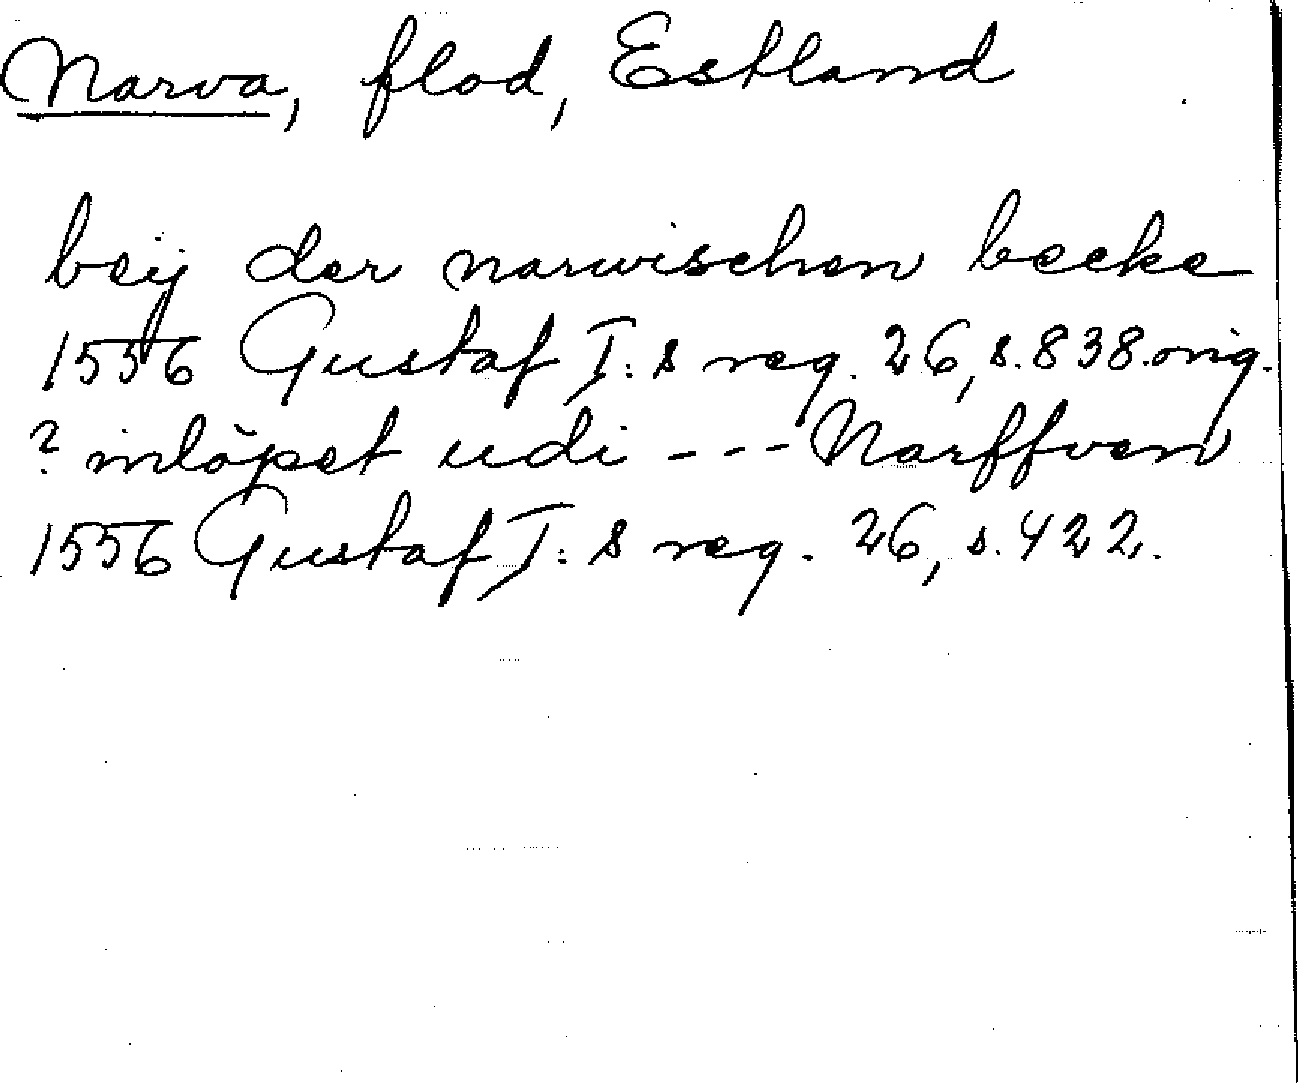 Narva, flod, Estland
beÿ der narwischen beeke
1556 Gustaf I:s reg. 26, s. 838. orig.
? inlöpet udi --- Narffven
1556 Gustaf I:s reg. 26, s. 422.